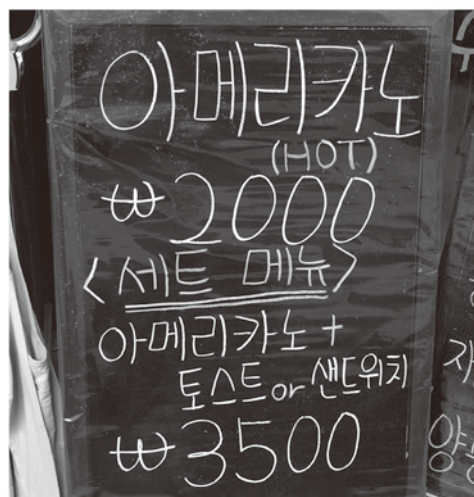 아메리카노
(HOT)
₩2000
<세트 메뉴>
아메리카노+
토스트 or 샌드위치
₩3500